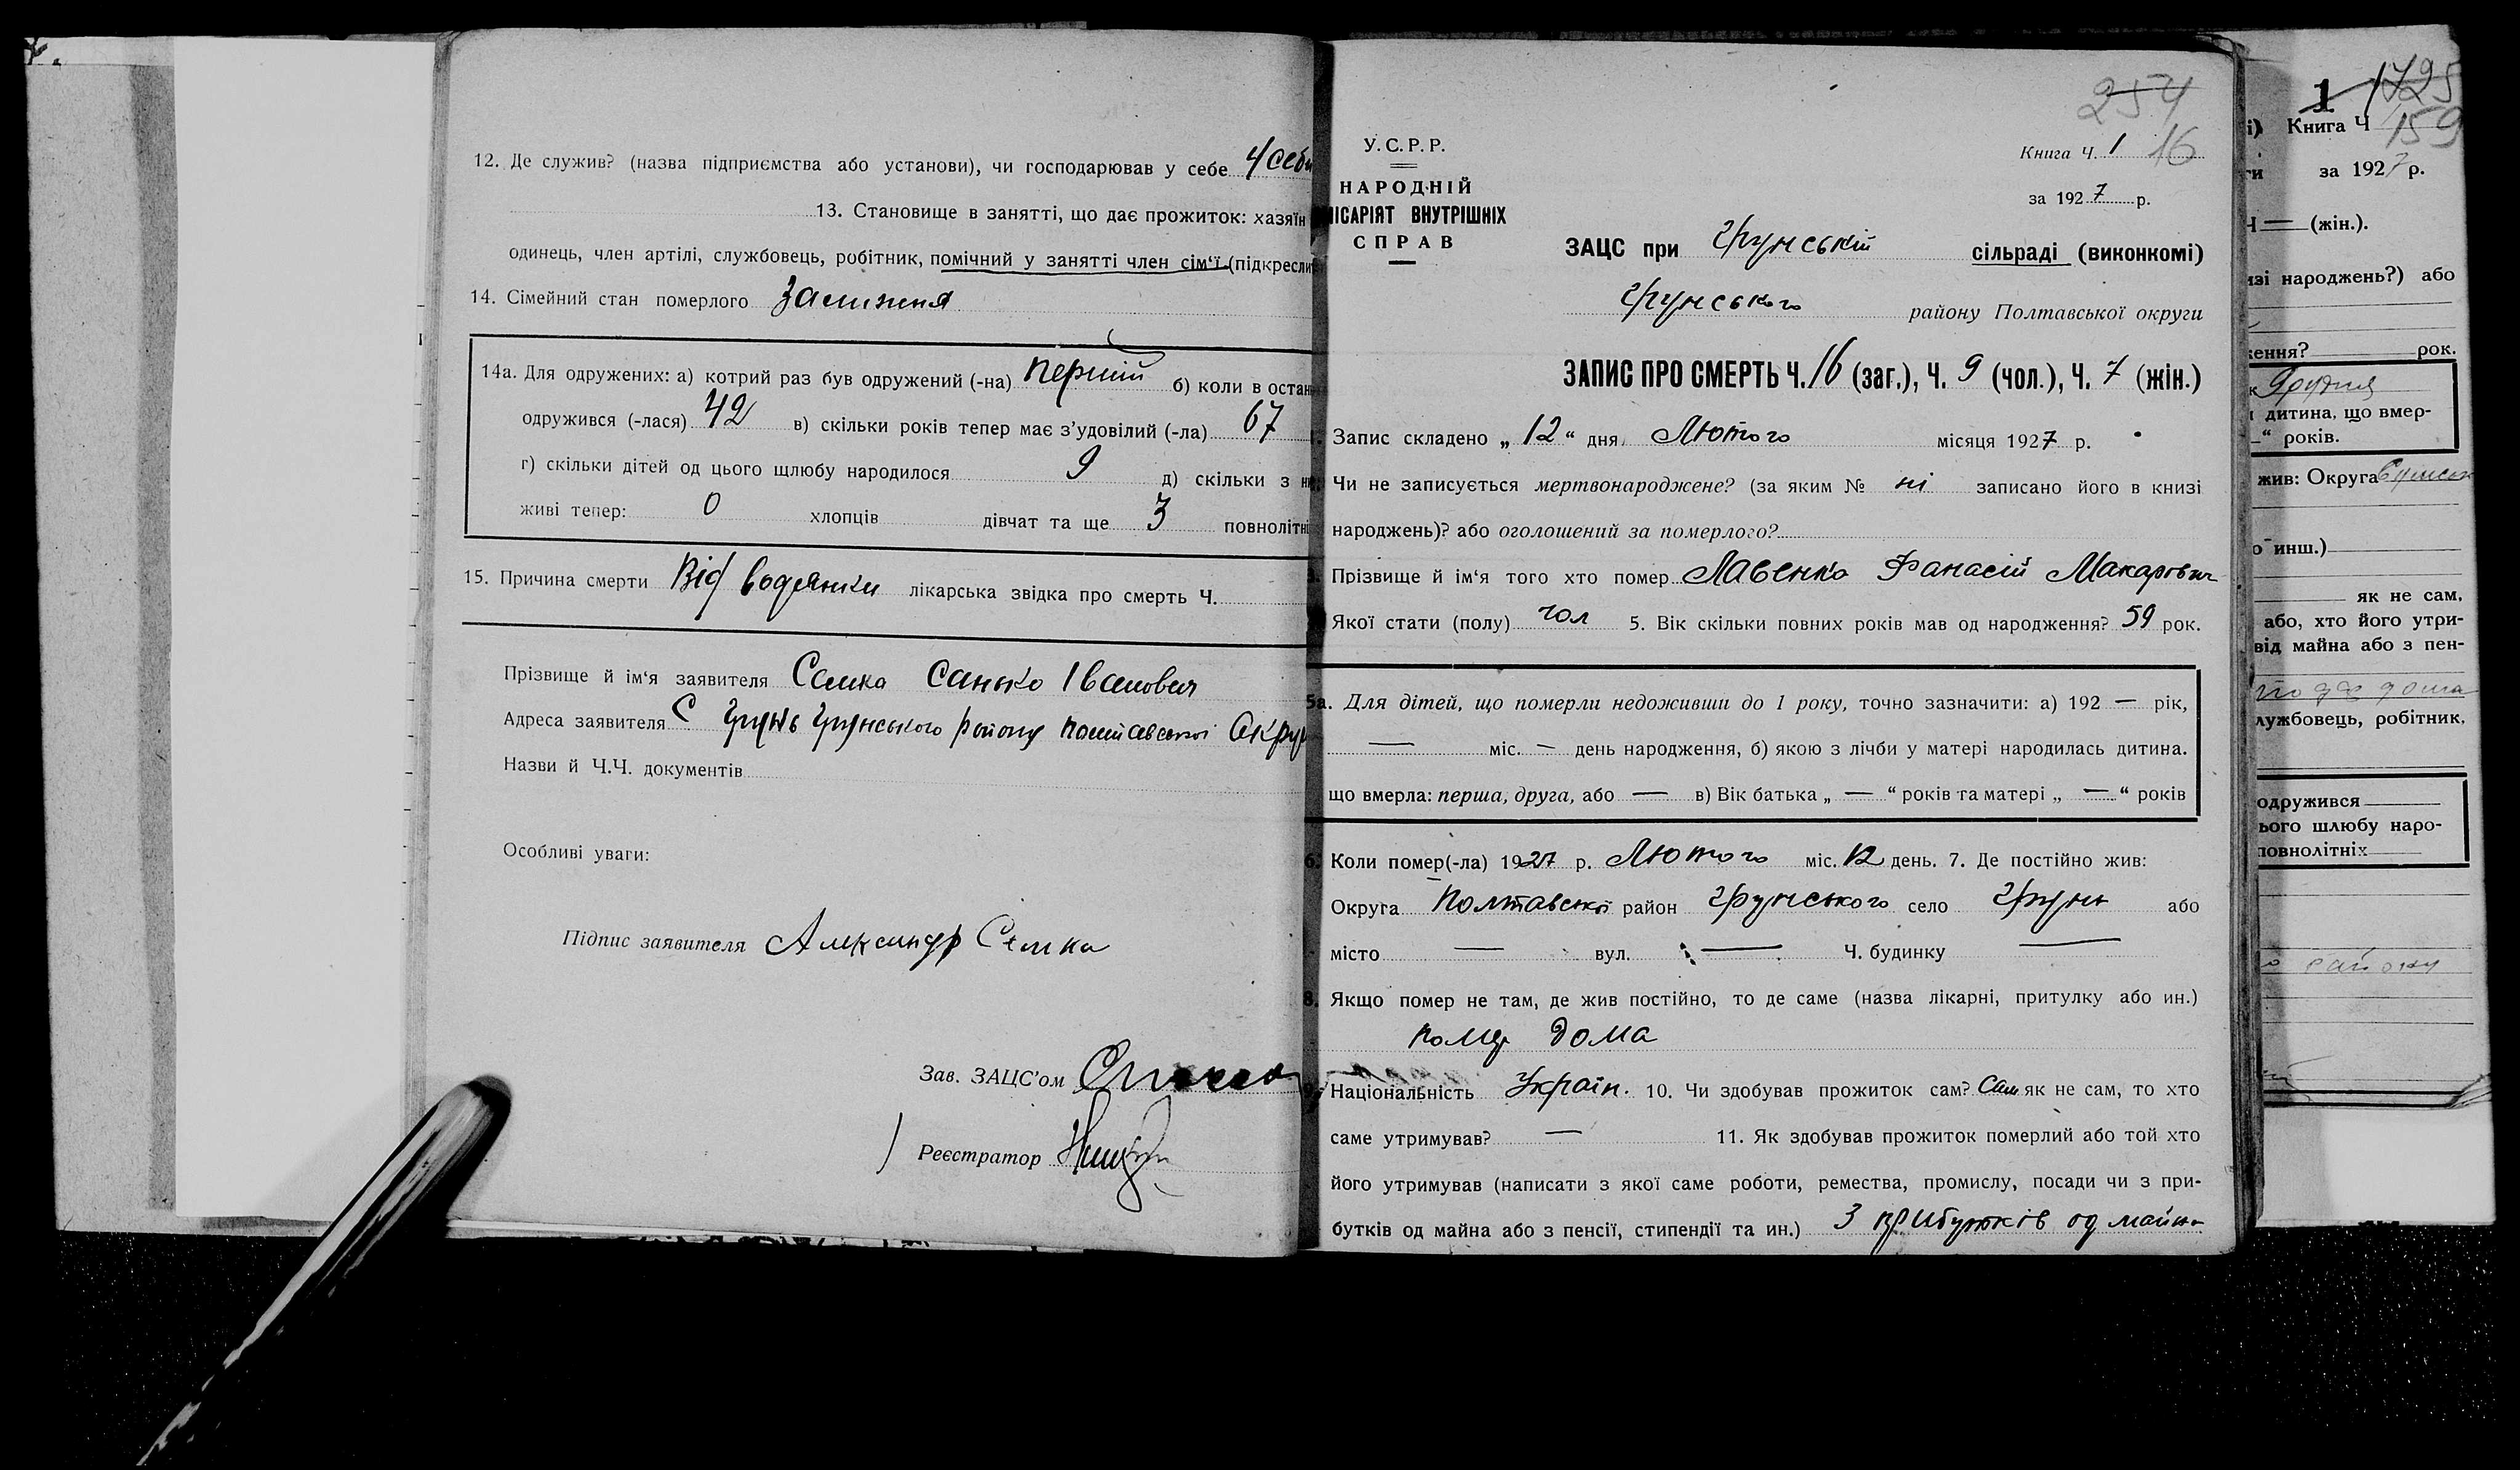 12. Де служив? (назва підприємства або установи), чи господарював у себе У себе
13. Становище в занятті, що дає прожиток: хазяїн
одинець, член артілі, службовець, робітник, помічний у занятті член сім'ї (підкресли
14. Сімейний стан померлого Замижня
14а. Для одружених: а) котрий раз був одружений (-на) перший б) коли в остан
одружився (-лася) 42 в) скільки років тепер має з'удовілий (-ла) 67
г) скільки дітей од цього щлюбу народилося 9 д) скільки з них
живі тепер: 0 хлопців дівчат та ще 3 повнолітні
15. Причина смерти Від водянки лікарська звідка про смерть Ч.
Прізвище й ім'я заявителя Семка Санько Іванович
Адреса заявителя С Грунь Грунського району Полтавської Окру
Назви й Ч.Ч. документів
Особливі уваги:
Підпис заявителя Александр Семка
Зав. ЗАЦС'ом
Реєстратор
254
У.С.Р.Р.
Книга Ч. 1 16
НАРОДНІЙ
ІСАРІЯТ ВНУТРІШНІХ
СПРАВ
за 1927 р.
ЗАЦС при Грунській сільраді (виконкомі)
Грунського району Полтавської округи
ЗАПИС ПРО СМЕРТЬ Ч. 16 (заг.), Ч. 9 (чол.), Ч. 7 (жін.)
Запис складено „ 12 “ дня Лютого місяця 1927 р.
Чи не записується мертвонароджене? (за яким № ні записано його в книзі
народжень)? або оголошений за померлого?
Прізвище й ім'я того хто помер Лавенко Фанасій Макарович
Якої стати (полу) чол 5. Вік скільки повних років мав од народження? 59 рок.
5а. Для дітей, що померли недоживши до 1 року, точно зазначити: а) 192 — рік,
— міс. — день народження, б) якою з лічби у матері народилась дитина.
що вмерла: перша, друга, або — в) Вік батька „ — “ років та матері „ — “ років
6. Коли помер(-ла) 1927 р. Лютого міс. 12 день. 7. Де постійно жив:
Округа Полтавської район Грунського село Грунь або
місто — вул. — Ч. будинку —
8. Якщо помер не там, де жив постійно, то де саме (назва лікарні, притулку або ин.)
помер дома
9. Національність Україн. 10. Чи здобував прожиток сам? Сам як не сам, то хто
саме утримував? — 11. Як здобував прожиток померлий або той хто
його утримував (написати з якої саме роботи, ремества, промислу, посади чи з при-
бутків од майна або з пенсії, стипендії та ин.) З прибутків од майна
1 1725
і) Книга Ч 159
за 1927 р.
Ч — (жін.).
изі народжень?) або
ження? рок.
Грудня
дитина, що вмер-
“ років.
жив: Округа
о инш.)
як не сам,
або, хто його утри-
від майна або з пен-
дома
лужбовець, робітник,
одружився
ього шлюбу наро-
повнолітніх
району